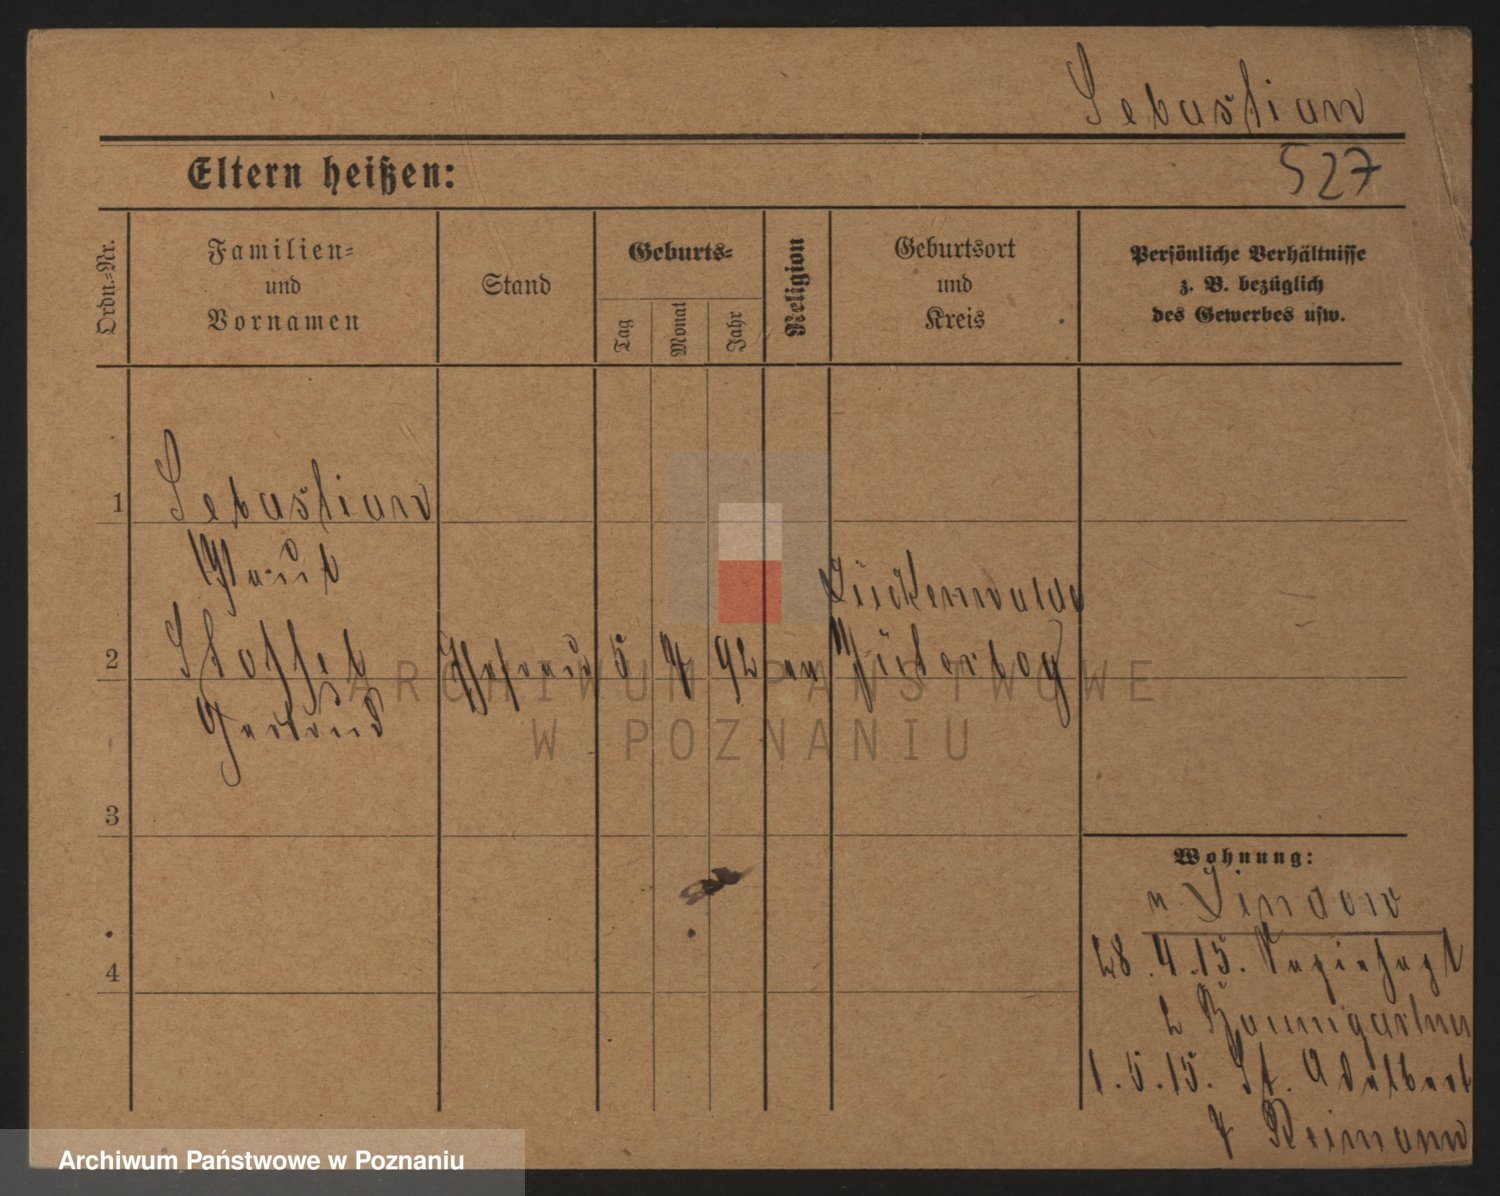 Sebastian
Eltern heißen:
527
Ordn.=Nr.
Familien=
und
Vornamen
Stand
Geburts=
Tag
Monat
Jahr
Religion
Geburtsort
und
Kreis
Persönliche Verhältnisse
z. B. bezüglich
des Gewerbes usw.
1
Sebastian
Paul
2
Stoffel
Gertrud
Ehefrau
5
7
92
ev
Luckenwalde
Jüterbog
3
4
Wohnung:
n. Lindow
28.4.15.
b Baumgarten
1.5.15. St. Adalbert
7 Reimann
ARCHIWUM PAŃSTWOWE
W POZNANIU
Archiwum Państwowe w Poznaniu